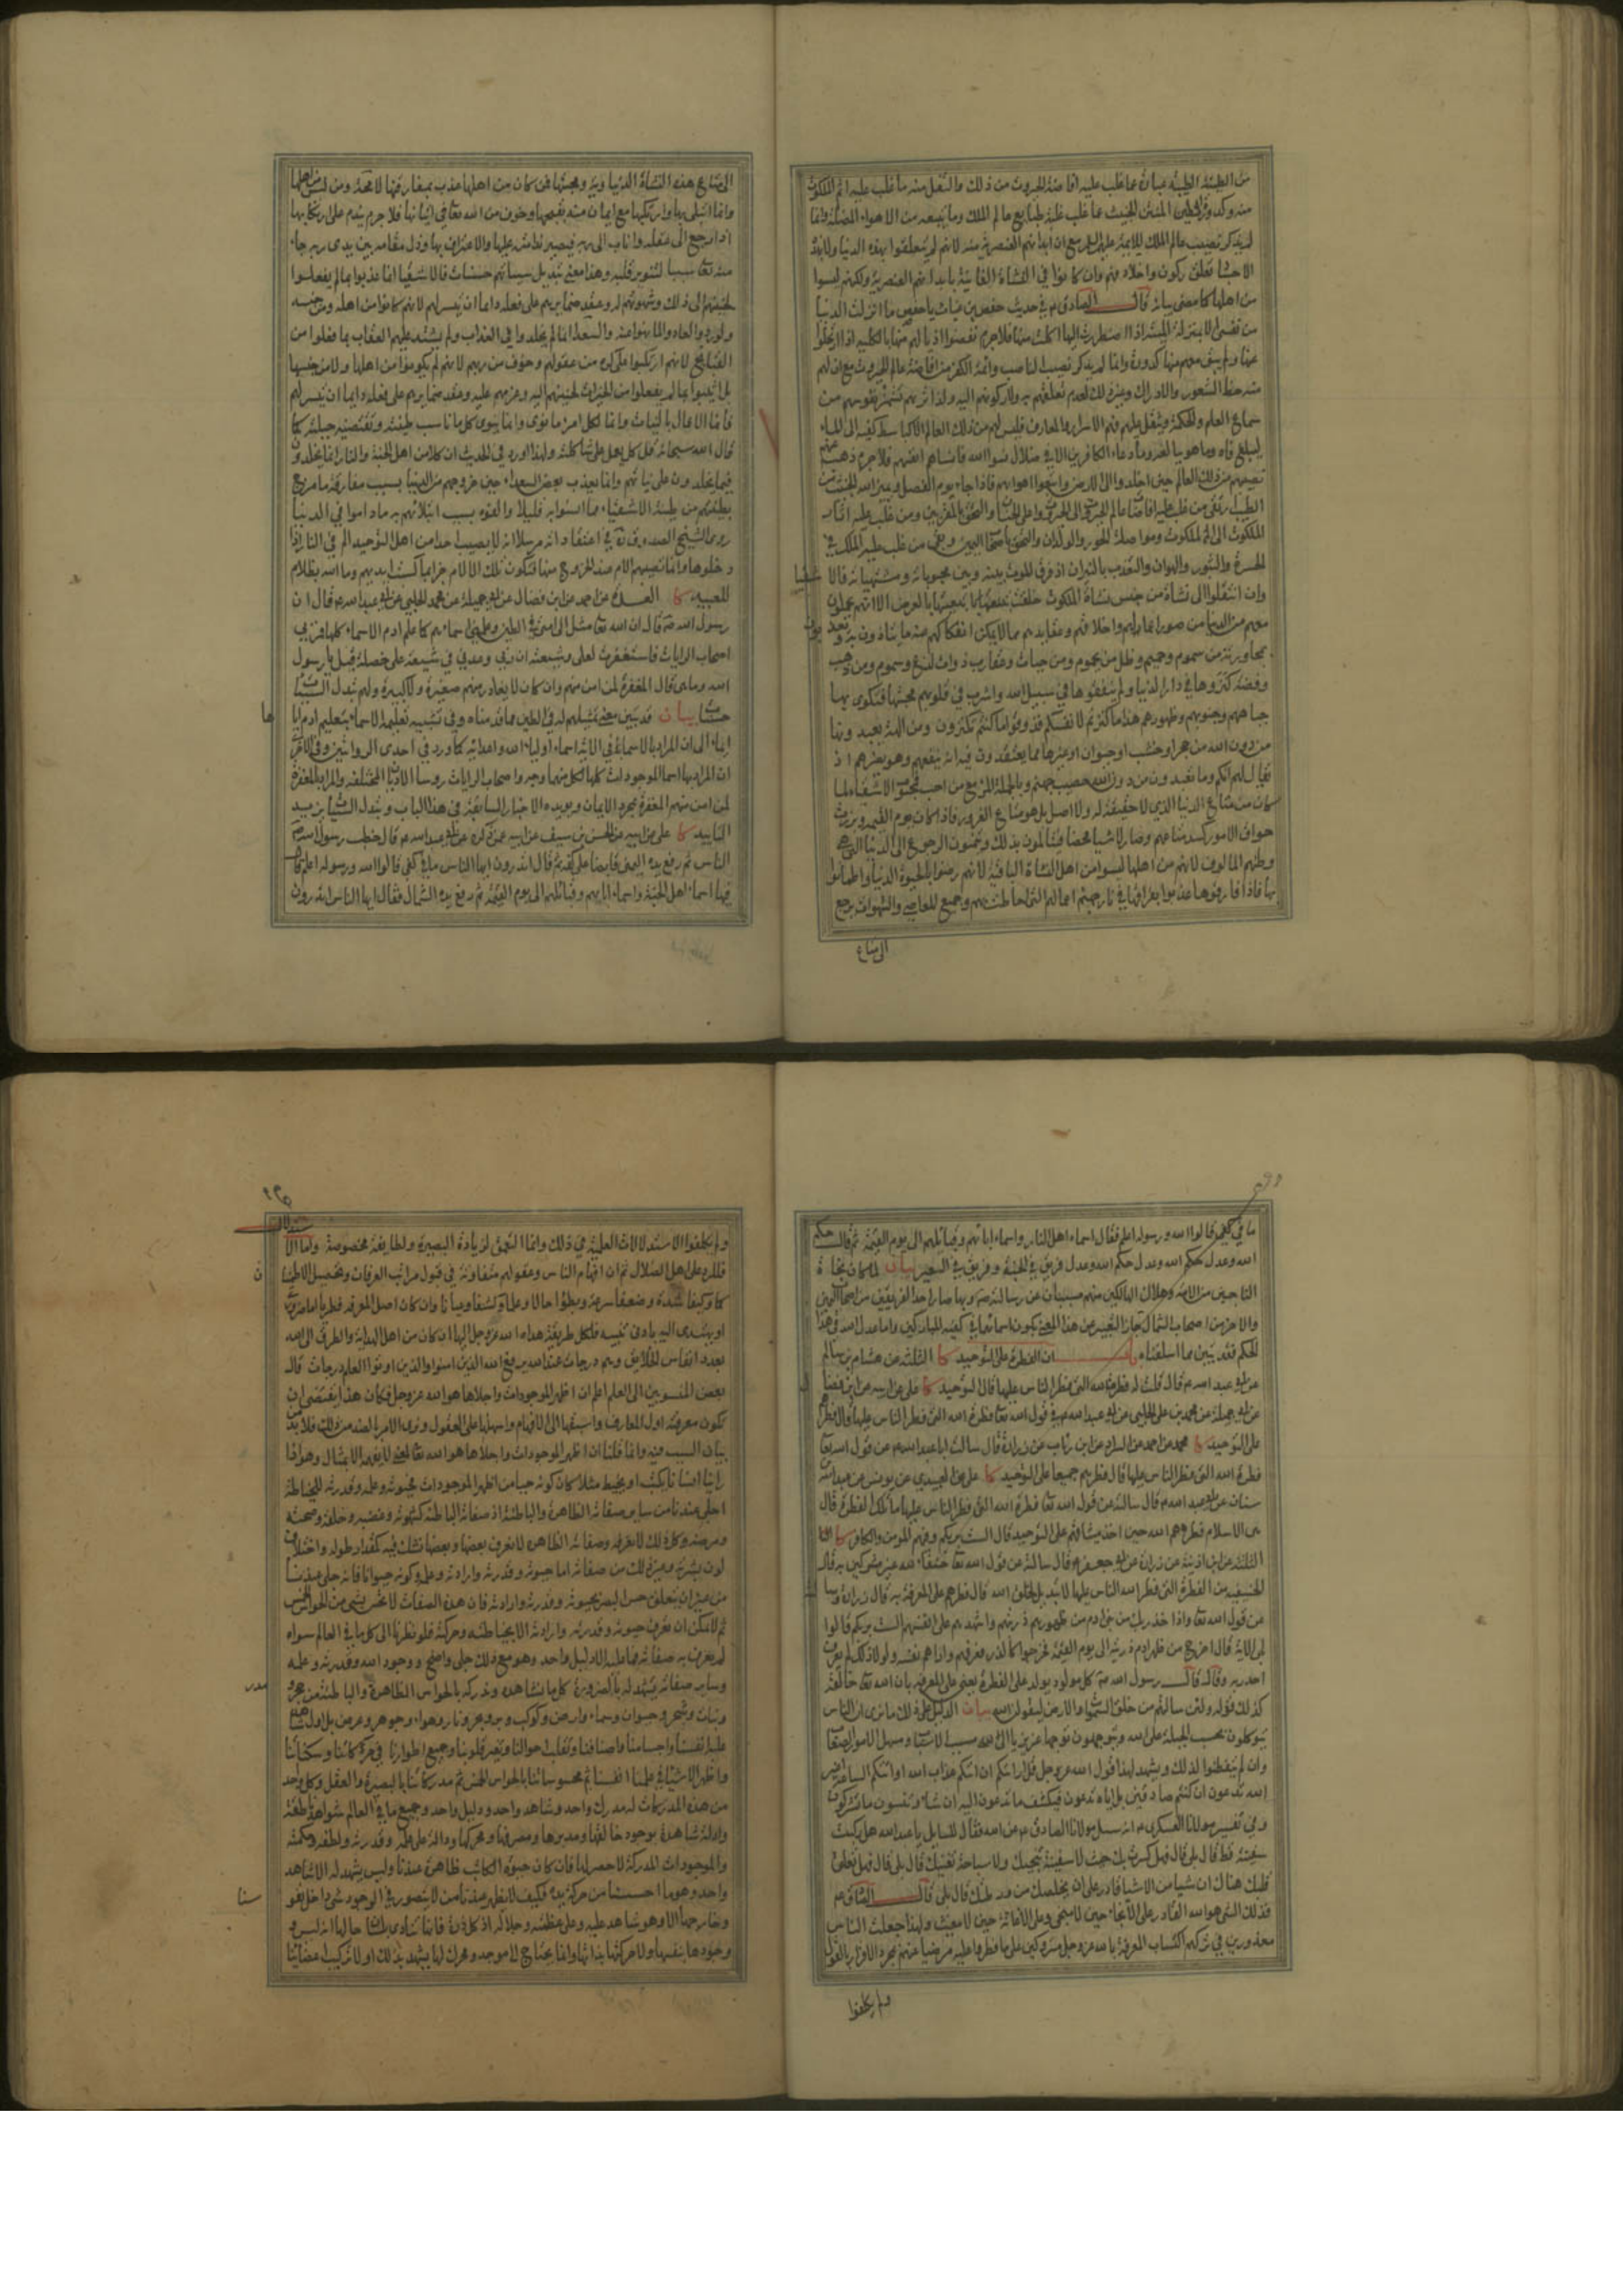 من الطينة الطيبة عبارة عما غلب عليه افاضة الجبروت من ذلك والثقل منه ما غلب عليه اثر الملكوت
منه وكدر الطين المنتن الخبيث عما غلب عليه طبايع عالم الملك وما يتبعه من الاهواء المضلة وانما
لم يذكر نصيب عالم الملك للائمة عليهم السلم مع ان ابدانهم العنصرية منه لانهم لم يتعلقوا بهذه الدنيا ولا بهذه
الاجساد تعلق ركون واخلاد فهم وان كانوا في النشأة الفانية بابدانهم العنصرية ولكنهم ليسوا
من اهلها كما مضى بيانه قال الصادق م في حديث حفص بن غياث يا حفص ما انزلت الدنيا
من نفسي الا بمنزلة الميتة اذا اضطررت اليها اكلت منها فلا جرم نفضوا اذيالهم منها بالكلية اذا ارتحلوا
عنها ولم يبق معهم منها كدورة وانما لم يذكر نصيب الناصب وائمة الكفر من افاضة عالم الجبروت مع ان لهم
منه حظ الشعور والادراك وغير ذلك لعدم تعلقهم به ولا ركونهم اليه ولذا تريهم تشمئز نفوسهم من
سماع العلم والحكمة ويثقل عليهم فهم الاسرار والمعارف فليس لهم من ذلك العالم الا كباسط كفيه الى الماء
ليبلغ فاه وما هو ببالغه وما دعاء الكافرين الا في ضلال نسوا الله فانساهم انفسهم فلا جرم ذهب عنهم
نصيبهم من ذلك العالم حين اخلدوا الى الارض واتبعوا اهواءهم فاذا جاء يوم الفصل وميز الله الخبيث من
الطيب ارتقى من غلب عليه افاضات عالم الجبروت الى الجبروت واعلى الجنان والتحق بالمقربين ومن غلب عليه اثار
الملكوت الى الملكوت ومواصلة الحور والولدان والتحق باصحاب اليمين وبقي من غلب عليه الملك في
الحسرة والثبور والهوان والتعذب بالنيران اذ فرق الموت بينه وبين محبوباته ومشتهياته فالاشقياء
وان انتقلوا الى نشأة من جنس نشأة الملكوت خلقت بتبعيتها بالعرض الا انهم يحملون
معهم من الدنيا من صور اعمالهم واخلاقهم وعقايدهم مما لا يمكن انفكاكهم عنه ما يتأذون به ويعذبون
بمجاورته من سموم وحميم وظل من يحموم ومن حيات وعقارب ذوات لدغ وسموم ومن ذهب
وفضة كنزوها في دار الدنيا ولم ينفقوها في سبيل الله واشرب في قلوبهم محبتها فتكوى بها
جباههم وجنوبهم وظهورهم هذا ما كنزتم لانفسكم فذوقوا ما كنتم تكنزون ومن الهة يعبدونها
من دون الله من حجر او خشب او حيوان او غيرها مما يعتقدون فيه انه ينفعهم وهو يضرهم اذ
يقال لهم انكم وما تعبدون من دون الله حصب جهنم وبالجملة المرء مع من احب فمحبوب الاشقياء لما
كان من متاع الدنيا الذي لا حقيقة له ولا اصل بل هو متاع الغرور فاذا كان يوم القيمة وبرزت
حواق الامور كسد متاعهم وصار لا شيئا محضا فيتألمون بذلك ويتمنون الرجوع الى الدنيا التي هي
وطنهم المألوف لانهم من اهلها ليسوا من اهل النشاة الباقية لانهم رضوا بالحيوة الدنيا واطمأنوا
بها فاذا فارقوها عذبوا بفراقها في نار جهنم اعمالهم التي احاطت بهم وجميع المعاصي والشهوات يرجع
الى متاع
الى متاع هذه النشأة الدنياوية ومحبتها فمن كان من اهلها عذب بمفارقتها لا محة ومن ليس من اهلها
وانما ابتلى بها وارتكبها مع ايمان منه بقبحها وخوف من الله تعا في اتيانها فلا جرم يندم على ارتكابها
اذا رجع الى عقله واناب الى ربه فيصير ندامته عليها والاعتراف بها وذل مقامه بين يدي ربه حياء
منه تعا سببا لتنوير قلبه وهذا معنى تبديل سيئاتهم حسنات فالاشقيا انما عذبوا بما لم يفعلوا
لحنينهم الى ذلك وشهوتهم له وعقد ضمايرهم على فعله دائما ان تيسر لهم لانهم كانوا من اهله ومن جنسه
ولو ردوا لعادوا لما نهوا عنه والسعداء انما لم يخلدوا في العذاب ولم يشتد عليهم العقاب بما فعلوا من
القبايح لانهم ارتكبوا على كره من عقولهم وخوف من ربهم لانهم لم يكونوا من اهلها ولا من جنسها
بل اثيبوا بما لم يفعلوا من الخيرات لحنينهم اليه وعزمهم عليه وعقد ضمايرهم على فعله دايما ان تيسر لهم
فانما الاعمال بالنيات وانما لكل امرء ما نوى وانما ينوي كل ما ناسب طينته وتقتضيه جبلته كما
قال الله سبحانه قل كل يعمل على شاكلته ولهذا ورد في الحديث ان كلا من اهل الجنة والنار انما يخلدون
فيما يخلدون على نياتهم وانما يعذب بعض السعداء حين خروجهم من الدنيا بسبب مفارقة ما مزج
بطينتهم من طينة الاشقياء مما انسوا به قليلا والفوه بسبب ابتلائهم به ما داموا في الدنيا
روى الشيخ الصدوق ره في اعتقاداته مرسلا انه لا يصيب احدا من اهل التوحيد الم في النار اذا
دخلوها وانما تصيبهم الالام عند الخروج منها فتكون تلك الالام جزاء بما كسبت ايديهم وما الله بظلام
للعبيد كا العدة عن احمد عن ابن فضال عن ابي جميلة عن محمد الحلبي عن ابي عبد الله ع قال ان
رسول الله ص قال ان الله تعا مثل لي امتي في الطين وعلمني اسماءهم كما علم ادم الاسماء كلها فمر بي
اصحاب الرايات فاستغفرت لعلي وشيعته ان ربي وعدني في شيعة علي خصلة قيل يا رسول
الله وما هي قال المغفرة لمن امن منهم وان كان لا يغادر منهم صغيرة ولا كبيرة ولهم تبدل السيئات
حسنات بيان قد تبين معنى تمثيلهم له في الطين مما قدمناه وفي تشبيه تعليمه الاسماء بتعليم ادم اياها
ايماء الى ان المراد بالاسماء في الاية اسماء اولياء الله واعدائه كما ورد في احدى الروايتين وفي الاخرى
ان المراد بها اسما الموجودات كلها ولكل منهما وجه واصحاب الرايات روسا الاديان المختلفة والمراد بالمغفرة
لمن امن منهم المغفرة بمجرد الايمان ويؤيده الاخبار السابقة في هذا الباب وتبدل السيئات يزيده
التاييد كا علي عن ابيه عن الحسن بن سيف عن ابيه عمن ذكره عن ابي عبد الله ع قال خطب رسول الله ص
الناس ثم رفع يده اليمنى قابضا على كفه ثم قال اتدرون ايها الناس ما في كفي قالوا الله ورسوله اعلم فقال
فيها اسماء اهل الجنة واسماء ابائهم وقبائلهم الى يوم القيمة ثم رفع يده الشمال فقال ايها الناس اتدرون
ما في كفي قالوا الله ورسوله اعلم فقال اسماء اهل النار واسماء ابائهم وقبائلهم الى يوم القيمة ثم قال حكم
الله وعدل حكم الله وعدل حكم الله وعدل فريق في الجنة وفريق في السعير بيان لما كان نجاة
الناجين من الامة وهلاك الهالكين منهم مسببان عن رسالته ص وبها صار احد الفريقين من اصحاب اليمين
والاخر من اصحاب الشمال جاز التعبير عن هذا المعنى بكون اسمائها في كفيه المباركين واما عدل الله في هذا
الحكم فقد تبين مما اسلفناه باب ان الفطرة على التوحيد كا الثلثة عن هشام بن سالم
عن ابي عبد الله ع قال قلت له فطرة الله التي فطر الناس عليها قال التوحيد كا علي عن ابيه عن ابن فضال
عن ابي جميلة عن محمد بن علي الحلبي عن ابي عبد الله ع في قول الله تعا فطرة الله التي فطر الناس عليها قال فطرهم
على التوحيد كا محمد عن احمد عن السراد عن ابن رئاب عن زرارة قال سالت ابا عبد الله ع عن قول الله تعا
فطرة الله التي فطر الناس عليها قال فطرهم جميعا على التوحيد كا علي عن العبيدي عن يونس عن عبد الله بن
سنان عن ابي عبد الله ع قال سالته عن قول الله تعا فطرة الله التي فطر الناس عليها ما تلك الفطرة قال
هي الاسلام فطرهم الله حين اخذ ميثاقهم على التوحيد قال الست بربكم وفيهم المومن والكافر كا
الثلثة عن ابن اذينة عن زرارة عن ابي جعفر ع قال سالته عن قول الله تعا حنفاء لله غير مشركين به قال
الحنيفية من الفطرة التي فطر الله الناس عليها لا تبديل لخلق الله قال فطرهم على المعرفة به قال زرارة وسالته
عن قول الله تعا واذ اخذ ربك من بني ادم من ظهورهم ذريتهم واشهدهم على انفسهم الست بربكم قالوا
بلى الاية قال اخرج من ظهر ادم ذريته الى يوم القيمة فخرجوا كالذر فعرفهم واراهم نفسه ولولا ذلك لم يعرف
احد ربه وقال قال رسول الله ص كل مولود يولد على الفطرة يعني على المعرفة بان الله تعا خالقه
كذلك قوله ولئن سالتهم من خلق السموات والارض ليقولن الله بيان الدليل على ذلك ما ترى ان الناس
يتوكلون بحسب الجبلة على الله ويتوجهون توجها غريزيا الى الله مسبب الاسباب ومسهل الامور الصعاب
وان لم يتفطنوا لذلك ويشهد لهذا قول الله عز وجل قل ارايتكم ان اتيكم عذاب الله او اتتكم الساعة اغير
الله تدعون ان كنتم صادقين بل اياه تدعون فيكشف ما تدعون اليه ان شاء وتنسون ما تشركون
وفي تفسير مولانا العسكري ع انه سئل مولانا الصادق ع عن الله فقال للسايل يا عبد الله هل ركبت
سفينة قط قال بلى قال فهل كسرت بك حيث لا سفينة تنجيك ولا سباحة تغنيك قال بلى قال فهل تعلق
قلبك هناك ان شيئا من الاشيا قادر على ان يخلصك من ورطتك قال بلى قال الصادق ع
فذلك الشيء هو الله القادر على الانجاء حين لا منجي وعلى الاغاثة حين لا مغيث ولهذا جعلت الناس
معذورين في تركهم اكتساب المعرفة بالله عز وجل متروكين على ما فطروا عليه مرضيا عنهم بمجرد الاقرار بالقول
ولم يكلفوا
ولم يكلفوا الاستدلالات العلمية في ذلك وانما التعمق لزيادة البصيرة ولطايفة مخصوصة واما الاستدلال
فللرد على اهل الضلال ثم ان افهام الناس وعقولهم متفاوتة في قبول مراتب العرفان وتحصيل الاطمينان
كما وكيفا شدة وضعفا سرعة وبطؤا حالا وعلما وكشفا وعيانا وان كان اصل المعرفة فطريا اما ضروري
او يهتدى اليه بادنى تنبيه فلكل طريقة هداه الله عز وجل اليها ان كان من اهل الهداية والطرق الى الله
بعدد انفاس الخلايق وهم درجات عند الله يرفع الله الذين امنوا والذين اوتوا العلم درجات قال
بعض المنسوبين الى العلم اعلم ان اظهر الموجودات واجلاها هو الله عز وجل فكان هذا يقتضي ان
تكون معرفته اول المعارف واسبقها الى الافهام واسهلها على العقول ونرى الامر بالضد من ذلك فلا بد من
بيان السبب فيه وانما قلنا ان اظهر الموجودات واجلاها هو الله تعا لمعنى لا نفهمه الا بمثال وهو انا
راينا انسانا يكتب او يخيط مثلا كان كونه حيا من اظهر الموجودات فحيوته وعلمه وقدرته للخياطة
اجلى عندنا من ساير صفاته الظاهرة والباطنة اذ صفاته الباطنة كشهوته وغضبه وخلقه وصحته
ومرضه وكل ذلك لا نعرفه وصفاته الظاهرة لا نعرف بعضها وبعضها نشك فيه كمقدار طوله واختلاف
لون بشرته وغير ذلك من صفاته اما حيوته وقدرته وارادته وعلمه وكونه حيوانا فانه جلي عندنا
من غير ان يتعلق حس البصر بحيوته وقدرته وارادته فان هذه الصفات لا تحس بشيء من الحواس الخمس
ثم لا يمكن ان نعرف حيوته وقدرته وارادته الا بخياطته وحركته فلو نظرنا الى كل ما في العالم سواه
لم نعرف به صفاته فما عليه الا دليل واحد وهو مع ذلك جلي واضح ووجود الله وقدرته وعلمه
وساير صفاته يشهد له بالضرورة كل ما نشاهده وندركه بالحواس الظاهرة والباطنة من حجر ومدر
ونبات وشجر وحيوان وسماء وارض وكوكب وبر وبحر ونار وهواء وجوهر وعرض بل اول شاهد
عليه انفسنا واجسامنا واصنافنا وتقلب احوالنا وتغير قلوبنا وجميع اطوارنا في حركاتنا وسكناتنا
واظهر الاشياء في علمنا انفسنا ثم محسوساتنا بالحواس الخمس ثم مدركاتنا بالبصيرة والعقل وكل واحد
من هذه المدركات له مدرك واحد وشاهد واحد ودليل واحد وجميع ما في العالم شواهد ناطقة
وادلة شاهدة بوجود خالقها ومدبرها ومصرفها ومحركها ودالة على علمه وقدرته ولطفه وحكمته
والموجودات المدركة لا حصر لها فان كان حيوة الكاتب ظاهرة عندنا وليس يشهد له الا شاهد
واحد وهو ما احسسنا من حركة يده فكيف لا يظهر عندنا من لا يتصور في الوجود شيء داخل نفوسنا
وخارجها الا وهو شاهد عليه وعلى عظمته وجلاله اذ كل ذرة فانها تنادي بلسان حالها انه ليس
وجودها بنفسها ولا حركتها بذاتها وانما يحتاج الى موجد ومحرك لها يشهد بذلك اولا تركيب اعضائنا